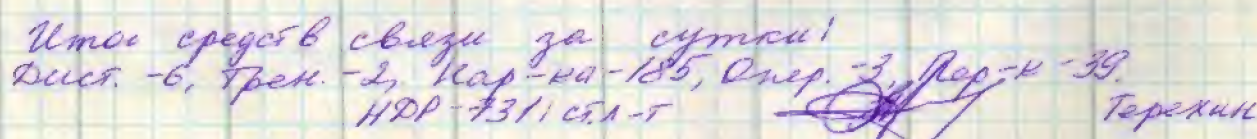 Итог средств связи за сутки!
Дист. -6, Трен. -2, Кар-ка-185, Опер. -3, Пар-к -39.
НДР-731: ст.л-т Терехин